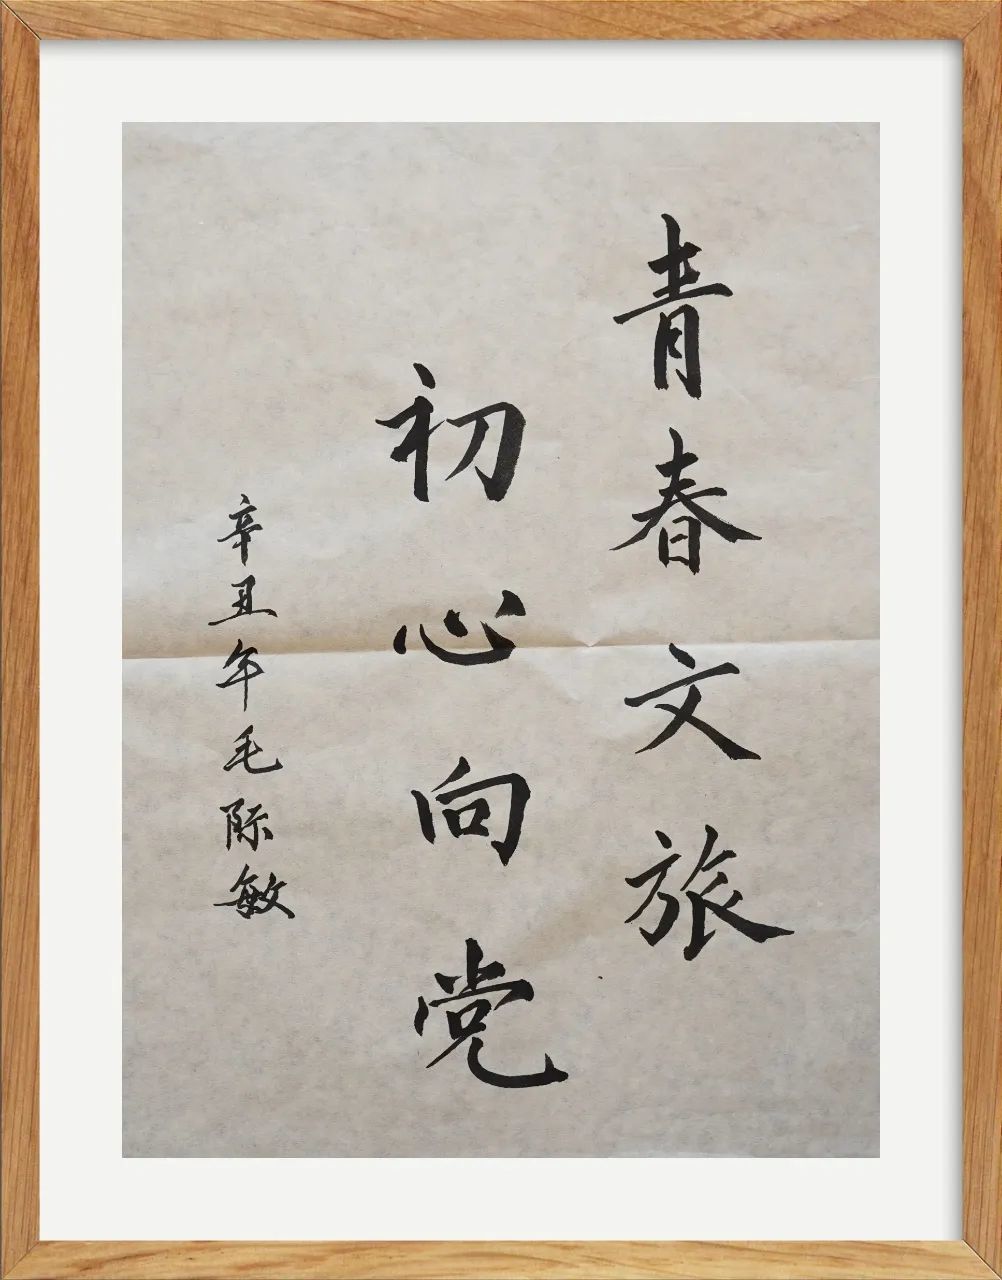 青春文旅
初心向党
辛丑年毛际敏